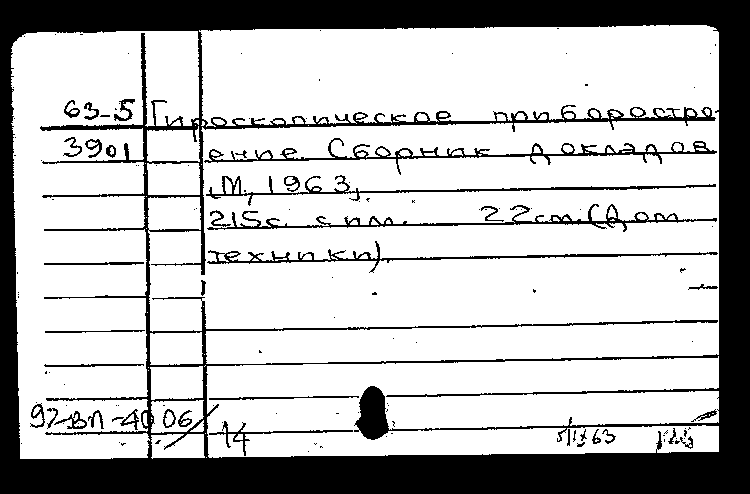 63-5 Гироскопическое приборостро-
3901 ение. Сборник докладов
М., 1963,
215с. с илл. 22см. (Дом
техники).
97-ВП-40 06
14
63